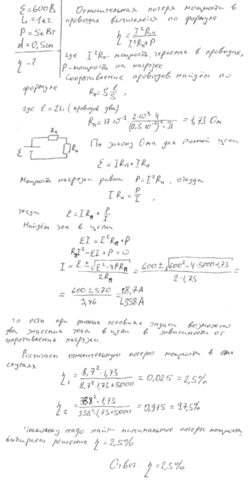 ε = 600 В
L = 1 км
P = 5 кВт
d = 0,5 см
η - ?
Относительная потеря мощности в
проводах вычисляется по формуле
η = I²Rл / (I²Rл + P)
где I²Rл - мощность, теряемая в проводах,
P - мощность на нагрузке
Сопротивление проводов найдём по
формуле
Rл = ρ l/S,
где l = 2L (проводов два)
По закону Ома для полной цепи
ε = IRл + IRн
Мощность нагрузки равна P = I²Rн, откуда
IRн = P/I,
тогда
ε = IRл + P/I
Найдём ток в цепи
εI = I²Rл + P
RлI² - εI + P = 0
I = (ε ± √(ε² - 4PRл)) / 2Rл = (600 ± √(600² - 4·5000·1,73)) / (2·1,73) =
= (600 ± 570) / 3,46 =
то есть при данных условиях задачи возможно
два значения тока в цепи в зависимости от
сопротивления нагрузки.
Рассчитаем относительную потерю мощности в этих
случаях
η₁ = 8,7²·1,73 / (8,7²·1,73 + 5000) = 0,025 = 2,5%
η₂ = 338²·1,73 / (338²·1,73 + 5000) = 0,975 = 97,5%
надо найти минимальные потери мощности,
выбираем решение η = 2,5%
Ответ. η = 2,5%